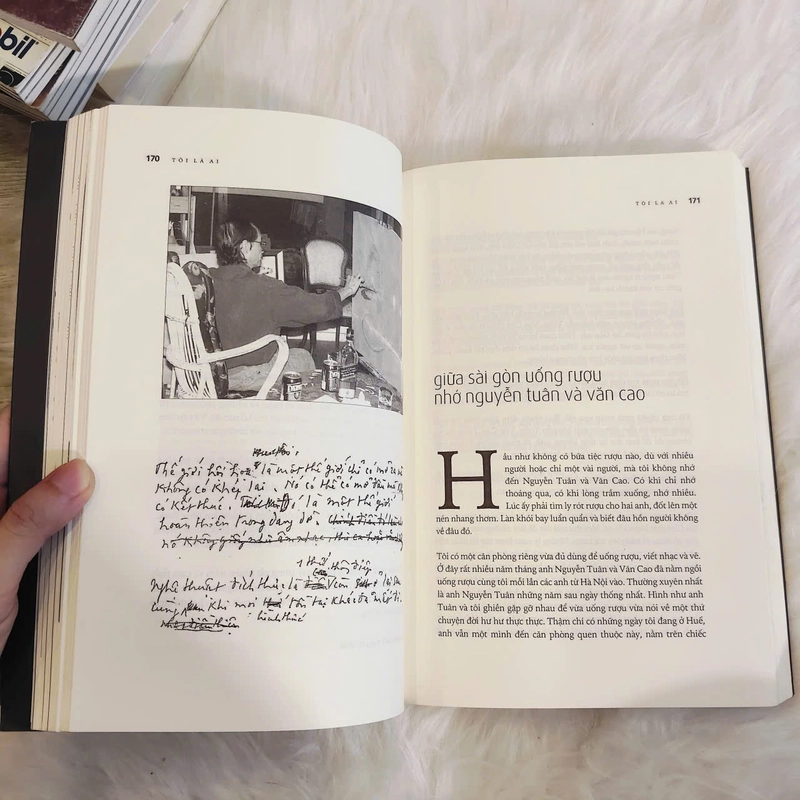 bil
170 TÔI LÀ AI
Thế giới hội họa là một thế giới chỉ có mở ra mà
không có khép lại. Nó có thể có mở đầu mà
có kết thúc. là một thế giới
hoàn thiện trong dang dở.
Nghệ thuật đích thực là
cùng khi mọi tồn tại khác đã mất đi.
hình thức
TÔI LÀ AI 171
giữa sài gòn uống rượu
nhớ nguyễn tuân và văn cao
Hầu như không có bữa tiệc rượu nào, dù với nhiều
người hoặc chỉ một vài người, mà tôi không nhớ
đến Nguyễn Tuân và Văn Cao. Có khi chỉ nhớ
thoáng qua, có khi lòng trầm xuống, nhớ nhiều.
Lúc ấy phải tìm ly rót rượu cho hai anh, đốt lên một
nén nhang thơm. Làn khói bay luẩn quẩn và biết đâu hồn người không
về đâu đó.
Tôi có một căn phòng riêng vừa đủ dùng để uống rượu, viết nhạc và vẽ.
Ở đây rất nhiều năm tháng anh Nguyễn Tuân và Văn Cao đã nằm ngồi
uống rượu cùng tôi mỗi lần các anh từ Hà Nội vào. Thường xuyên nhất
là anh Nguyễn Tuân những năm sau ngày thống nhất. Hình như anh
Tuân và tôi ghiền gặp gỡ nhau để vừa uống rượu vừa nói về một thứ
chuyện đời hư hư thực thực. Thậm chí có những ngày tôi đang ở Huế,
anh vẫn một mình đến căn phòng quen thuộc này, nằm trên chiếc